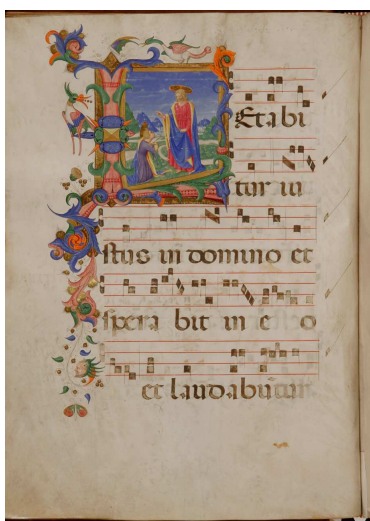 Etabi
tur iu
stus in domino et
spera bit in e o
et laudabuntur